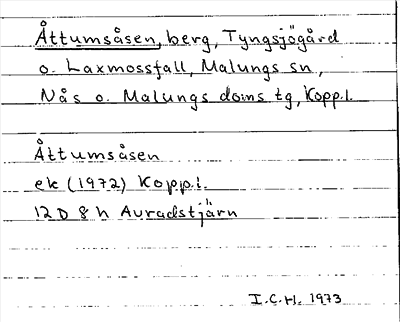 Åttumsåsen, berg, Tyngsjögård
o. Laxmossfall, Malungs sn,
Nås o. Malungs doms tg, Kopp.l.
Åttumsåsen
ek (1972) Kopp.l.
12 D 8 h Avradstjärn
I.C.H. 1973